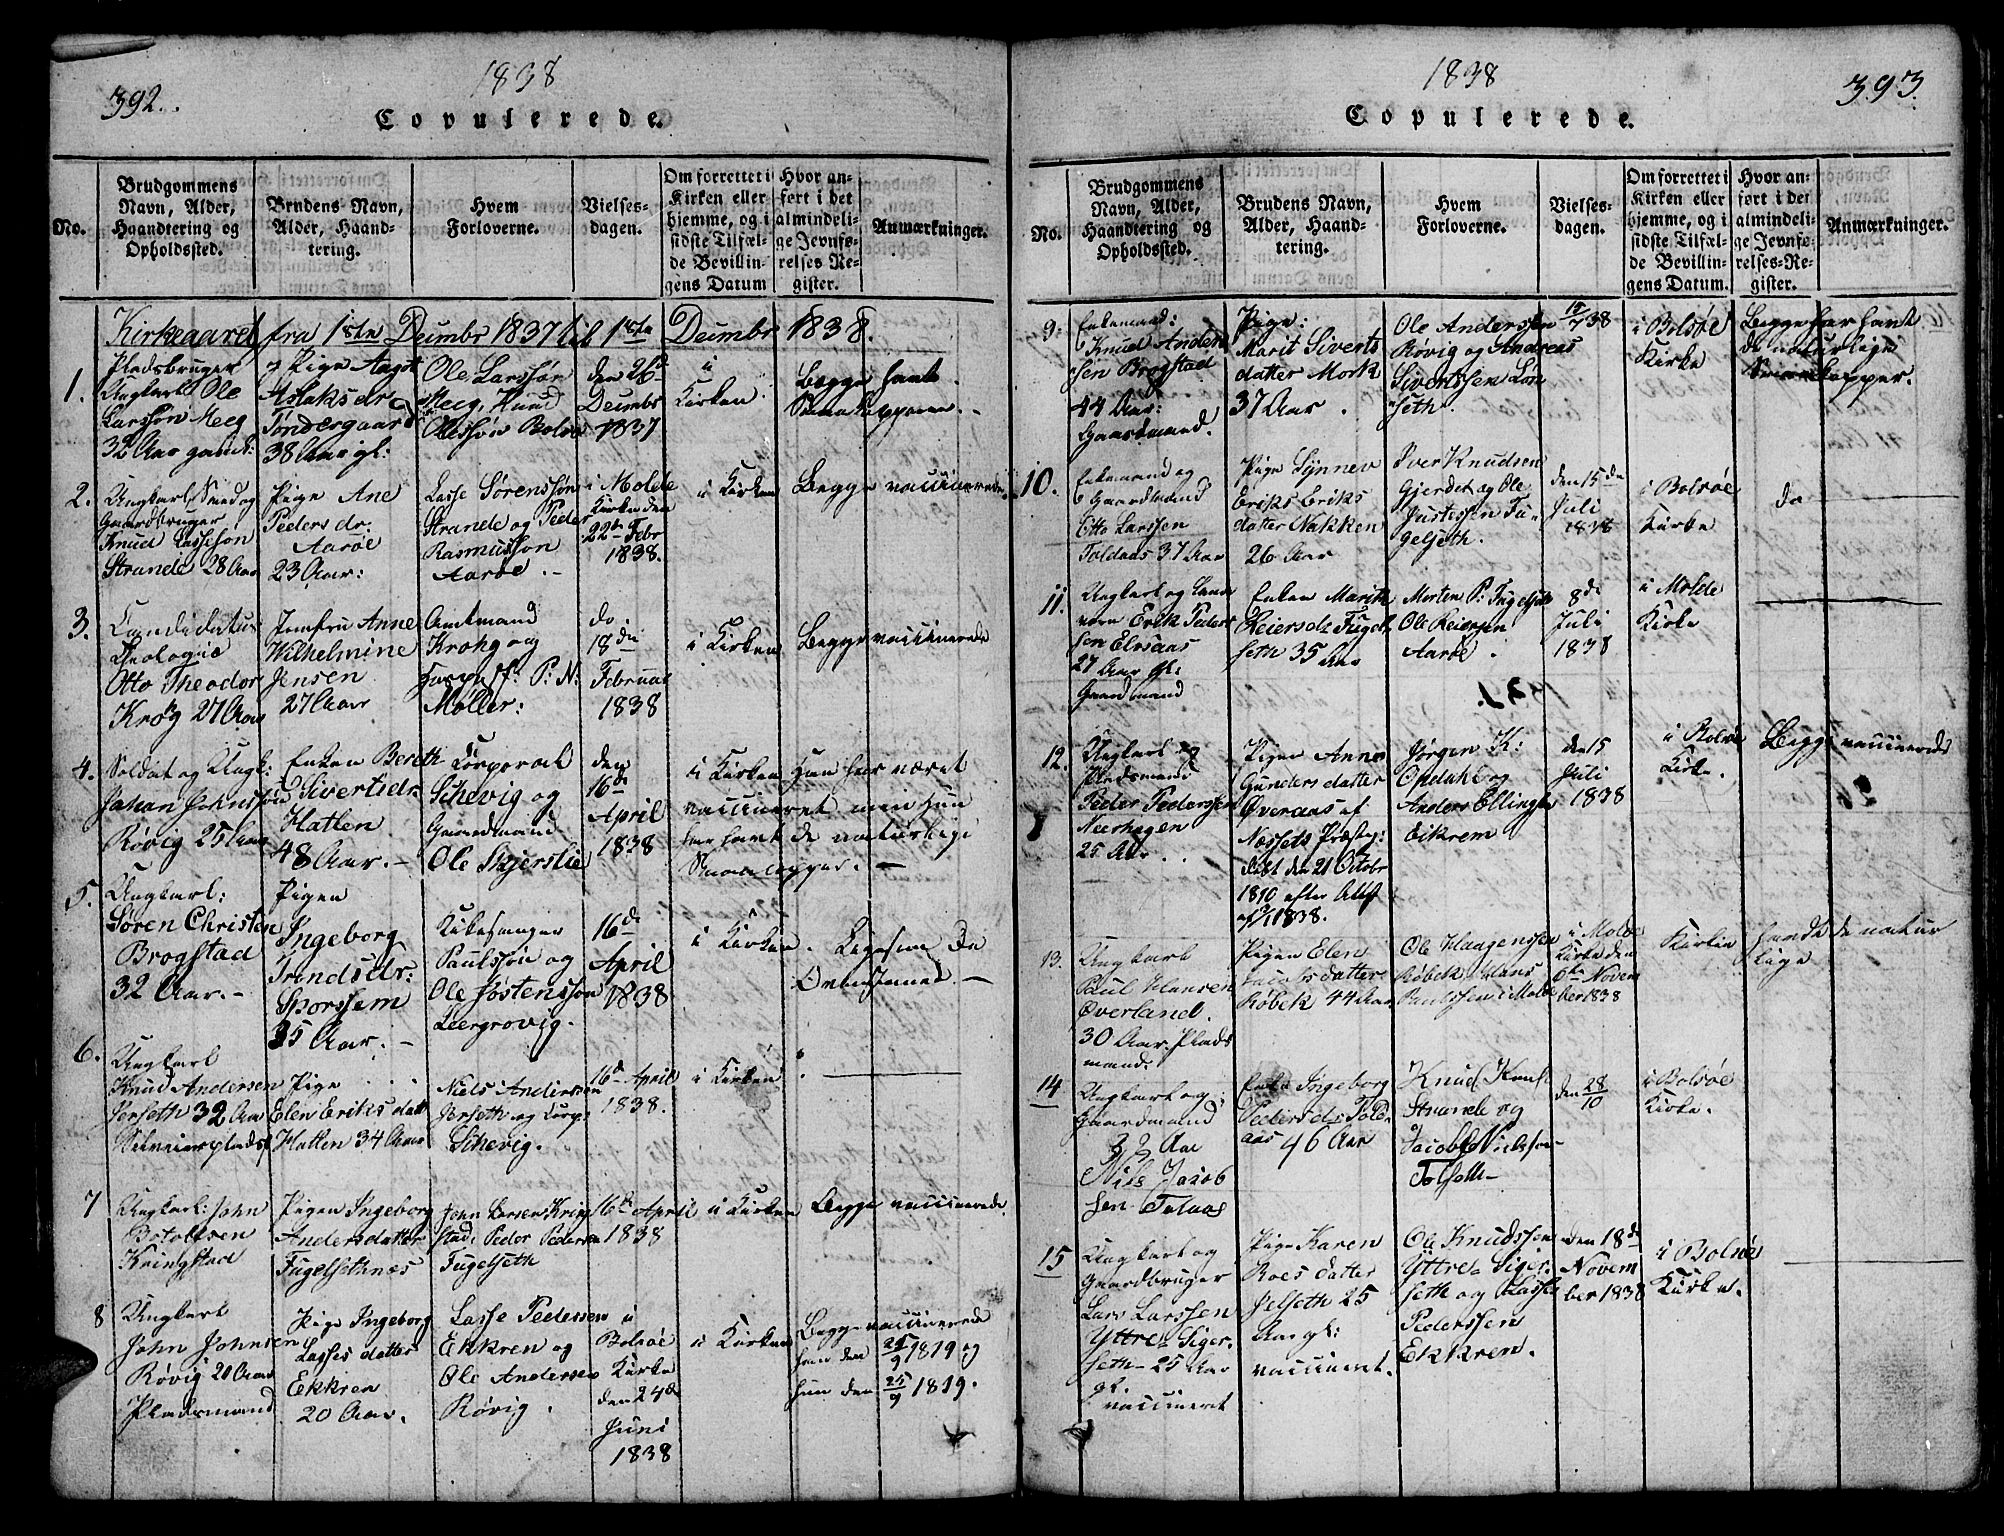 392.
1838
Copulerede.
No.
Brudgommens Navn, Alder, Haandtering og Opholdssted.
Brudens Navn, Alder, Haandtering.
Hvem Forloverne.
Vielsesdagen.
Om forrettet i Kirken eller hjemme, og i sidste Tilfælde Bevillingens Datum
Hvor anført i det almindelige Jevnførelses-Register.
Anmærkninger.
Kirkeaaret fra 1ste Decmbr 1837 til 1ste Decmbr 1838.
1.
Pladsbruger
Ungkarl Ole
Larssøn Meeg
32 Aar gaml:
Pige Aagot
Aslaksdr
Tøndergaard
38 Aar gl:
Ole Larssøn
Meeg, Knud
Olessøn Bolsø
den 26de
Decmbr
1837
i
Kirken
Begge havt
Smaakopperne.
2.
Ungkarl, Smed og
Gaardbruger
Knud Lassesøn
Strande 28 Aar
Pige Ane
Peders dr.
Aarøe
23 Aar:
Lasse Sørenssøn
Strande og Peder
Rasmussøn
Aarøe.
i Molde
Kirke den
22de Febr
1838.
i Kirken
Begge vaccinerede
3.
Candidatus
Theologiæ
Otto Theodor
Krog 27 Aar
Jomfru Anne
Wilhelmine
Jensen
27 Aar
Amtmand
Krohg og
P: N:
Møller:
do.
18de
Februar
1838
i Kirken
Begge vaccinerede
4.
Soldat og Ungk:
Johan Johnssøn
Røvig 25 Aar
Enken Bereth
Sivertsdr
Hatlen
48 Aar.
Corporal
Schevig og
Gaardmand
Ole Skjerslie
den
16de
April
1838
i Kirken
Han har været
vaccineret men hun
har havt de naturlige
Smaakopper.
5.
Ungkarl:
Søren Christen
Brogstad
32 Aar.
Pigen
Ingeborg
Trondsdr:
Sporsem
35 Aar.
Kirkesanger
Paulssøn og
Ole Jostenssøn
Leergrovig.
16de
April
1838
i Kirken.
Ligesom de
Ovenfornævnte.
6.
Ungkarl
Knud Andersen
Jerseth 32 Aar
Pige
Elen Eriks datt
Hatlen 34 Aar
Niels Andersen
Jerseth og Corp:
Schevig.
16de April
1838.
i Kirken
7
Ungkarl: John
Botolvsen
Kringstad
Pigen Ingeborg
Andersdatter
Fugelsethnes
John Larsen Kring
stad, Peder Pedersen
Fugelseth
16de April
1838
i Kirken
Begge vaccinerede
8
Ungkarl
John Johnsen
Røvig 20 Aar
Pladsmand
Pige Ingeborg
Lasses datter
Ekkren
20 Aar.
Lasse Pedersen
Ekkren og
Ole Andersen
Røvig.
i
Bolsøe
Kirke
den 24de
Juni
1838
i Kirken
Begge vaccinerede
han den 25/9 1819 og
hun den 25/9 1819.
1838
393.
Copulerede.
No.
Brudgommens Navn, Alder, Haandtering og Opholdssted.
Brudens Navn, Alder, Haandtering.
Hvem Forloverne.
Vielsesdagen.
Om forrettet i Kirken eller hjemme, og i sidste Tilfælde Bevillingens Datum.
Hvor anført i det almindelige Jevnførelses-Register.
Anmærkninger.
9.
Enkemand:
Knud Anders
sen Brogstad
44 Aar:
Gaardmand.
Pige:
Marit Siverts
datter Mork
37 Aar.
Ole Anderssen
Røvig og Andreas
Sivertssen Løn
seth.
15/7 38
i Bolsøe
Kirke
Begge har havt
de naturlige
Smaakopper.
10.
Enkemand og
Gaardmand
Otto Larssen
Toldaas 37 Aar
Pige Synnev
Eriks Eriks
datter Nakken
26 Aar
Iver Knudsen
Gjerdet og Ole
Justessen Fu-
gelseth.
den 15de
Juli
1838
i Bolsøe
Kirke
do
11.
Erik Peder
sen Elvsaas
27 Aar gl:
Gaardmand
Enken Marith
Reiersdr Fugel
seth 35 Aar
Morten P: Fugelseth
Ole Reiersen
Aarøe.
8de
Juli
1838
i Molde
Kirke
12.
Ungkarl og
Pladsmand
Peder Pederssen
Neerhagen
25 Aar.
Pigen Anne
Gunders datter
Øveraas af
Næssets Præstg:
døbt den 21 Octobr
1810 efter Attst
af 3/1 1838.
Jørgen K:
Opdahl og
Anders Ellingsen
Eikrem
den 15
Juli
1838
i Bolsøe
Kirke.
Begge vaccinerede
13.
Ungkarl
Poul Hansen
Øverland.
30 Aar. Plads
mand.
Pigen Elen
datter
Røbek 44 Aar
Ole Haagenssen
Røbek, Hans
Paulssen i Molde
i Molde
Kirke den
6te Novem
ber 1838
Kirke
havt de natur
lige
14
Ungkarl og
Gaardmand
33 Aar
Niels Jacob
sen Tolaas
Enke Ingeborg
Pedersdr Told-
aas
46 Aar
Knud Knuds
Strande og
Jacob Nielssen
Tolseth
den 28/10
i Bolsøe
Kirke.
15
Ungkarl og
Gaardbruger
Lars Larssen
Yttre Siger-
seth 25 Aar
gl.
vaccineret
Pige Karen
Boes datter
Jelseth 25
Aar gl:
vaccineret.
Ole Knudssen
Yttre Siger-
seth og Lasse
Pederssen
Ekkren.
den 18de
Novem
ber 1838
i Bolsøe
Kirke.